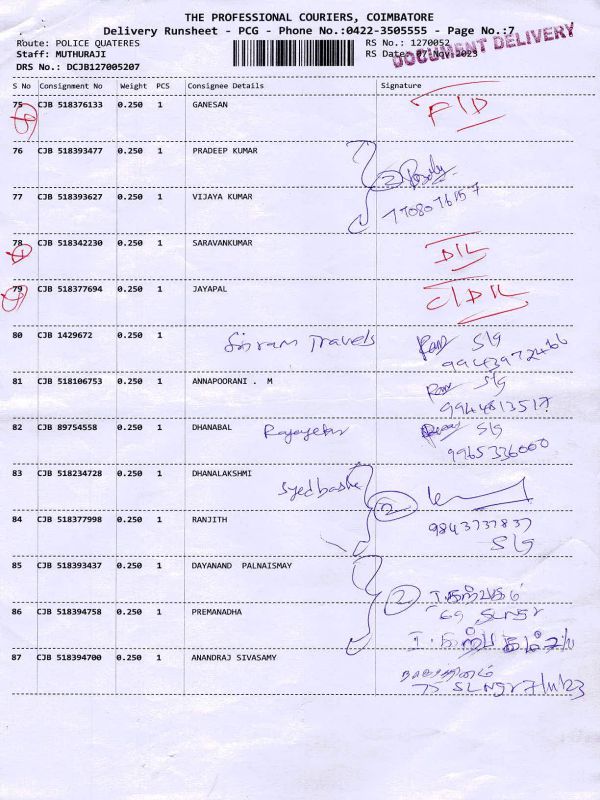 THE PROFESSIONAL COURIERS, COIMBATORE
Delivery Runsheet - PCG - Phone No.:0422-3505555 - Page No.:7
Route: POLICE QUATERES RS No.: 1270052
Staff: MUTHURAJI RS Date: 07 Nov 2023
DOCUMENT DELIVERY
DRS No.: DCJB127005207
S No Consignment No Weight PCS Consignee Details Signature
75 CJB 518376133 0.250 1 GANESAN
76 CJB 518393477 0.250 1 PRADEEP KUMAR
2
77 CJB 518393627 0.250 1 VIJAYA KUMAR
78 CJB 518342230 0.250 1 SARAVANKUMAR
D/L
79 CJB 518377694 0.250 1 JAYAPAL
80 CJB 1429672 0.250 1
Travels S/g
81 CJB 518106753 0.250 1 ANNAPOORANI . M S/g
82 CJB 89754558 0.250 1 DHANABAL S/g
9965336000
83 CJB 518234728 0.250 1 DHANALAKSHMI
Syed basha 2
84 CJB 518377998 0.250 1 RANJITH 9843737837
S/g
85 CJB 518393437 0.250 1 DAYANAND PALNAISMAY
2
86 CJB 518394758 0.250 1 PREMANADHA
87 CJB 518394700 0.250 1 ANANDRAJ SIVASAMY